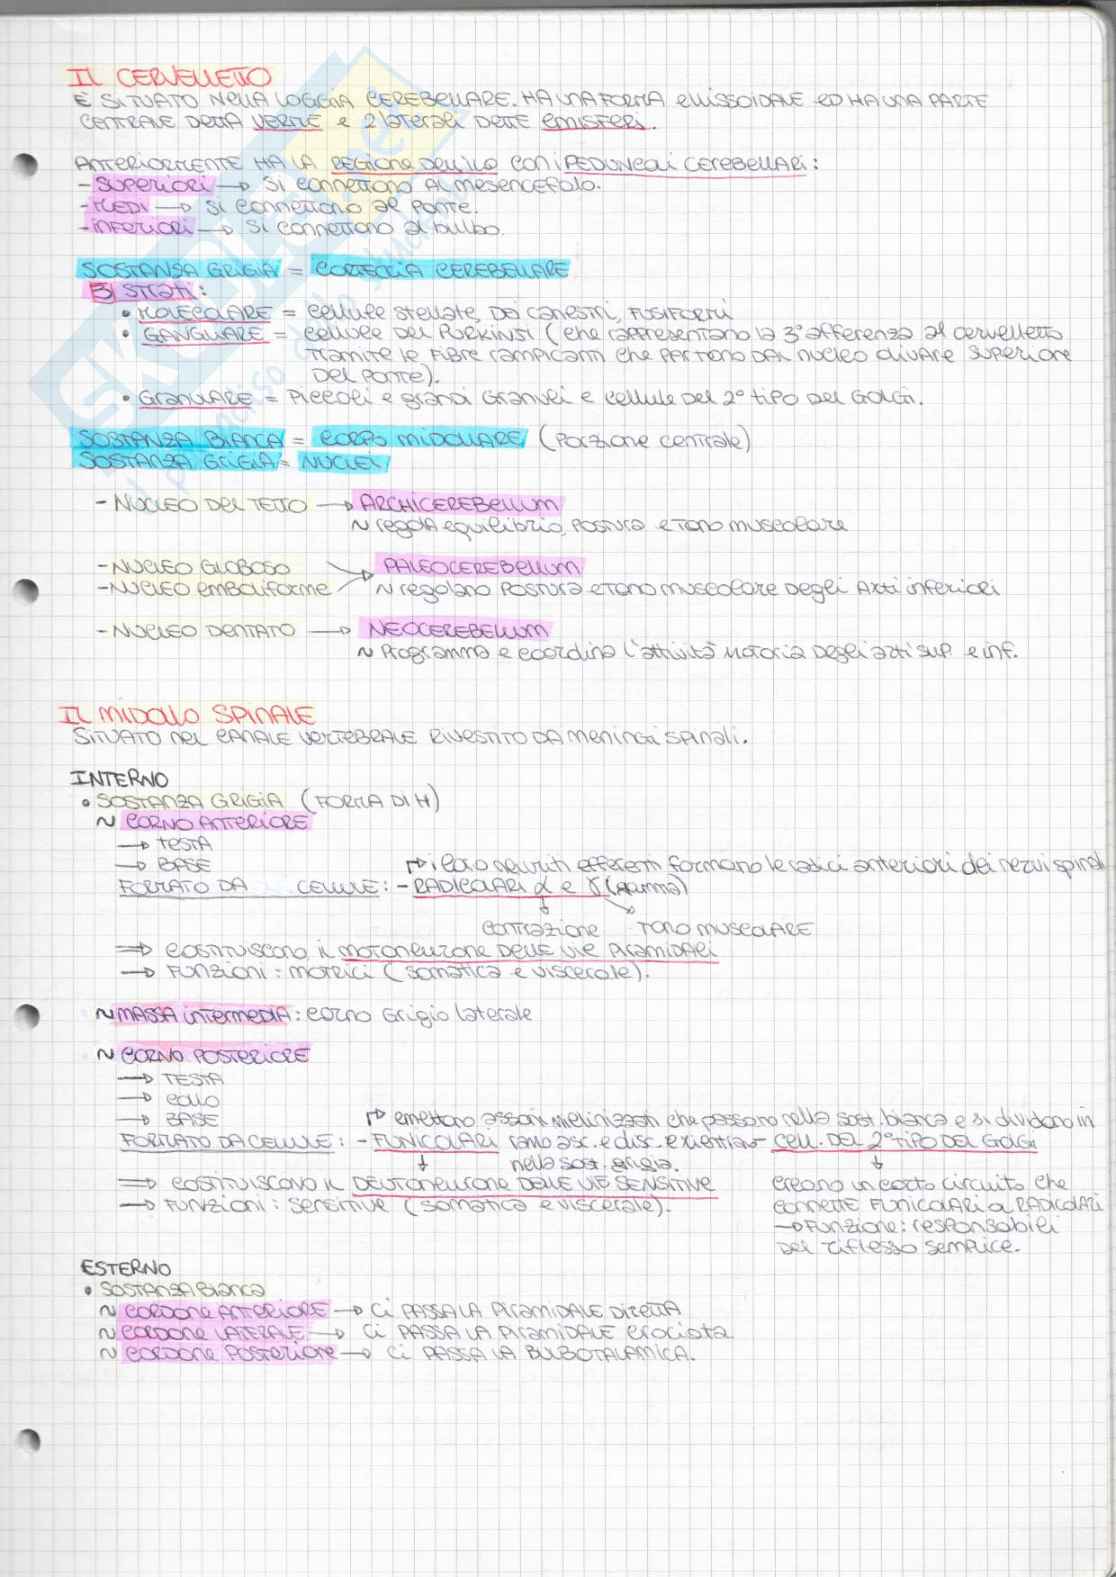 IL CERVELLETTO
È SITUATO NELLA LOGGIA CEREBELLARE. HA UNA FORMA ELLISSOIDALE ED HA UNA PARTE
CENTRALE DETTA VERME E 2 LATERALI DETTE EMISFERI.
ANTERIORMENTE HA LA REGIONE DELL'ILO CON I PEDUNCOLI CEREBELLARI:
- SUPERIORI → SI CONNETTONO AL MESENCEFALO.
- MEDI → SI CONNETTONO AL PONTE.
- INFERIORI → SI CONNETTONO AL BULBO.
SOSTANZA GRIGIA = CORTECCIA CEREBELLARE
3 STRATI:
• MOLECOLARE = CELLULE STELLATE, DA CANESTRI, FUSIFORMI
• GANGLIARE = CELLULE DEL PURKINSI (CHE RAPPRESENTANO LA 3° AFFERENZA AL CERVELLETTO
TRAMITE LE FIBRE RAMPICANTI CHE PARTONO DAL NUCLEO OLIVARE SUPERIORE
DEL PONTE).
• GRANULARE = PICCOLI E GRANDI GRANULI E CELLULE DEL 2° TIPO DEL GOLGI.
SOSTANZA BIANCA = CORPO MIDOLLARE (PORZIONE CENTRALE)
SOSTANZA GRIGIA = NUCLEI
- NUCLEO DEL TETTO → ARCHICEREBELLUM
~ REGOLA EQUILIBRIO, POSTURA E TONO MUSCOLARE
- NUCLEO GLOBOSO
PALEOCEREBELLUM
- NUCLEO EMBOLIFORME
~ REGOLANO POSTURA E TONO MUSCOLARE DEGLI ARTI INFERIORI
- NUCLEO DENTATO → NEOCEREBELLUM
~ PROGRAMMA E COORDINA L'ATTIVITÀ MOTORIA DEGLI ARTI SUP. E INF.
IL MIDOLLO SPINALE
SITUATO NEL CANALE VERTEBRALE RIVESTITO DA MENINGI SPINALI.
INTERNO
• SOSTANZA GRIGIA (FORMA DI H)
~ CORNO ANTERIORE
→ TESTA
→ BASE
→ i loro neuriti efferenti formano le radici anteriori dei nervi spinali
FORMATO DA CELLULE: - RADICOLARI α e γ (gamma)
CONTRAZIONE TONO MUSCOLARE
⇒ COSTITUISCONO IL MOTONEURONE DELLE VIE PIRAMIDALI
→ FUNZIONI: MOTRICI (SOMATICA E VISCERALE).
~ MASSA INTERMEDIA: CORNO GRIGIO LATERALE
~ CORNO POSTERIORE
→ TESTA
→ COLLO
→ BASE
→ emettono assoni mielinizzati che passano nella sost. bianca e si dividono in
FORMATO DA CELLULE: - FUNICOLARI ramo asc. e disc. e rientrano - CELL. DEL 2° TIPO DEL GOLGI
nella sost. grigia.
⇒ COSTITUISCONO IL DEUTONEURONE DELLE VIE SENSITIVE
→ FUNZIONI: SENSITIVE (SOMATICA E VISCERALE).
CREANO UN CORTO CIRCUITO CHE
CONNETTE FUNICOLARI A RADICOLARI
→ FUNZIONE: RESPONSABILI
DEL RIFLESSO SEMPLICE.
ESTERNO
• SOSTANZA BIANCA
~ CORDONE ANTERIORE → CI PASSA LA PIRAMIDALE DIRETTA
~ CORDONE LATERALE → CI PASSA LA PIRAMIDALE CROCIATA
~ CORDONE POSTERIORE → CI PASSA LA BULBOTALAMICA.